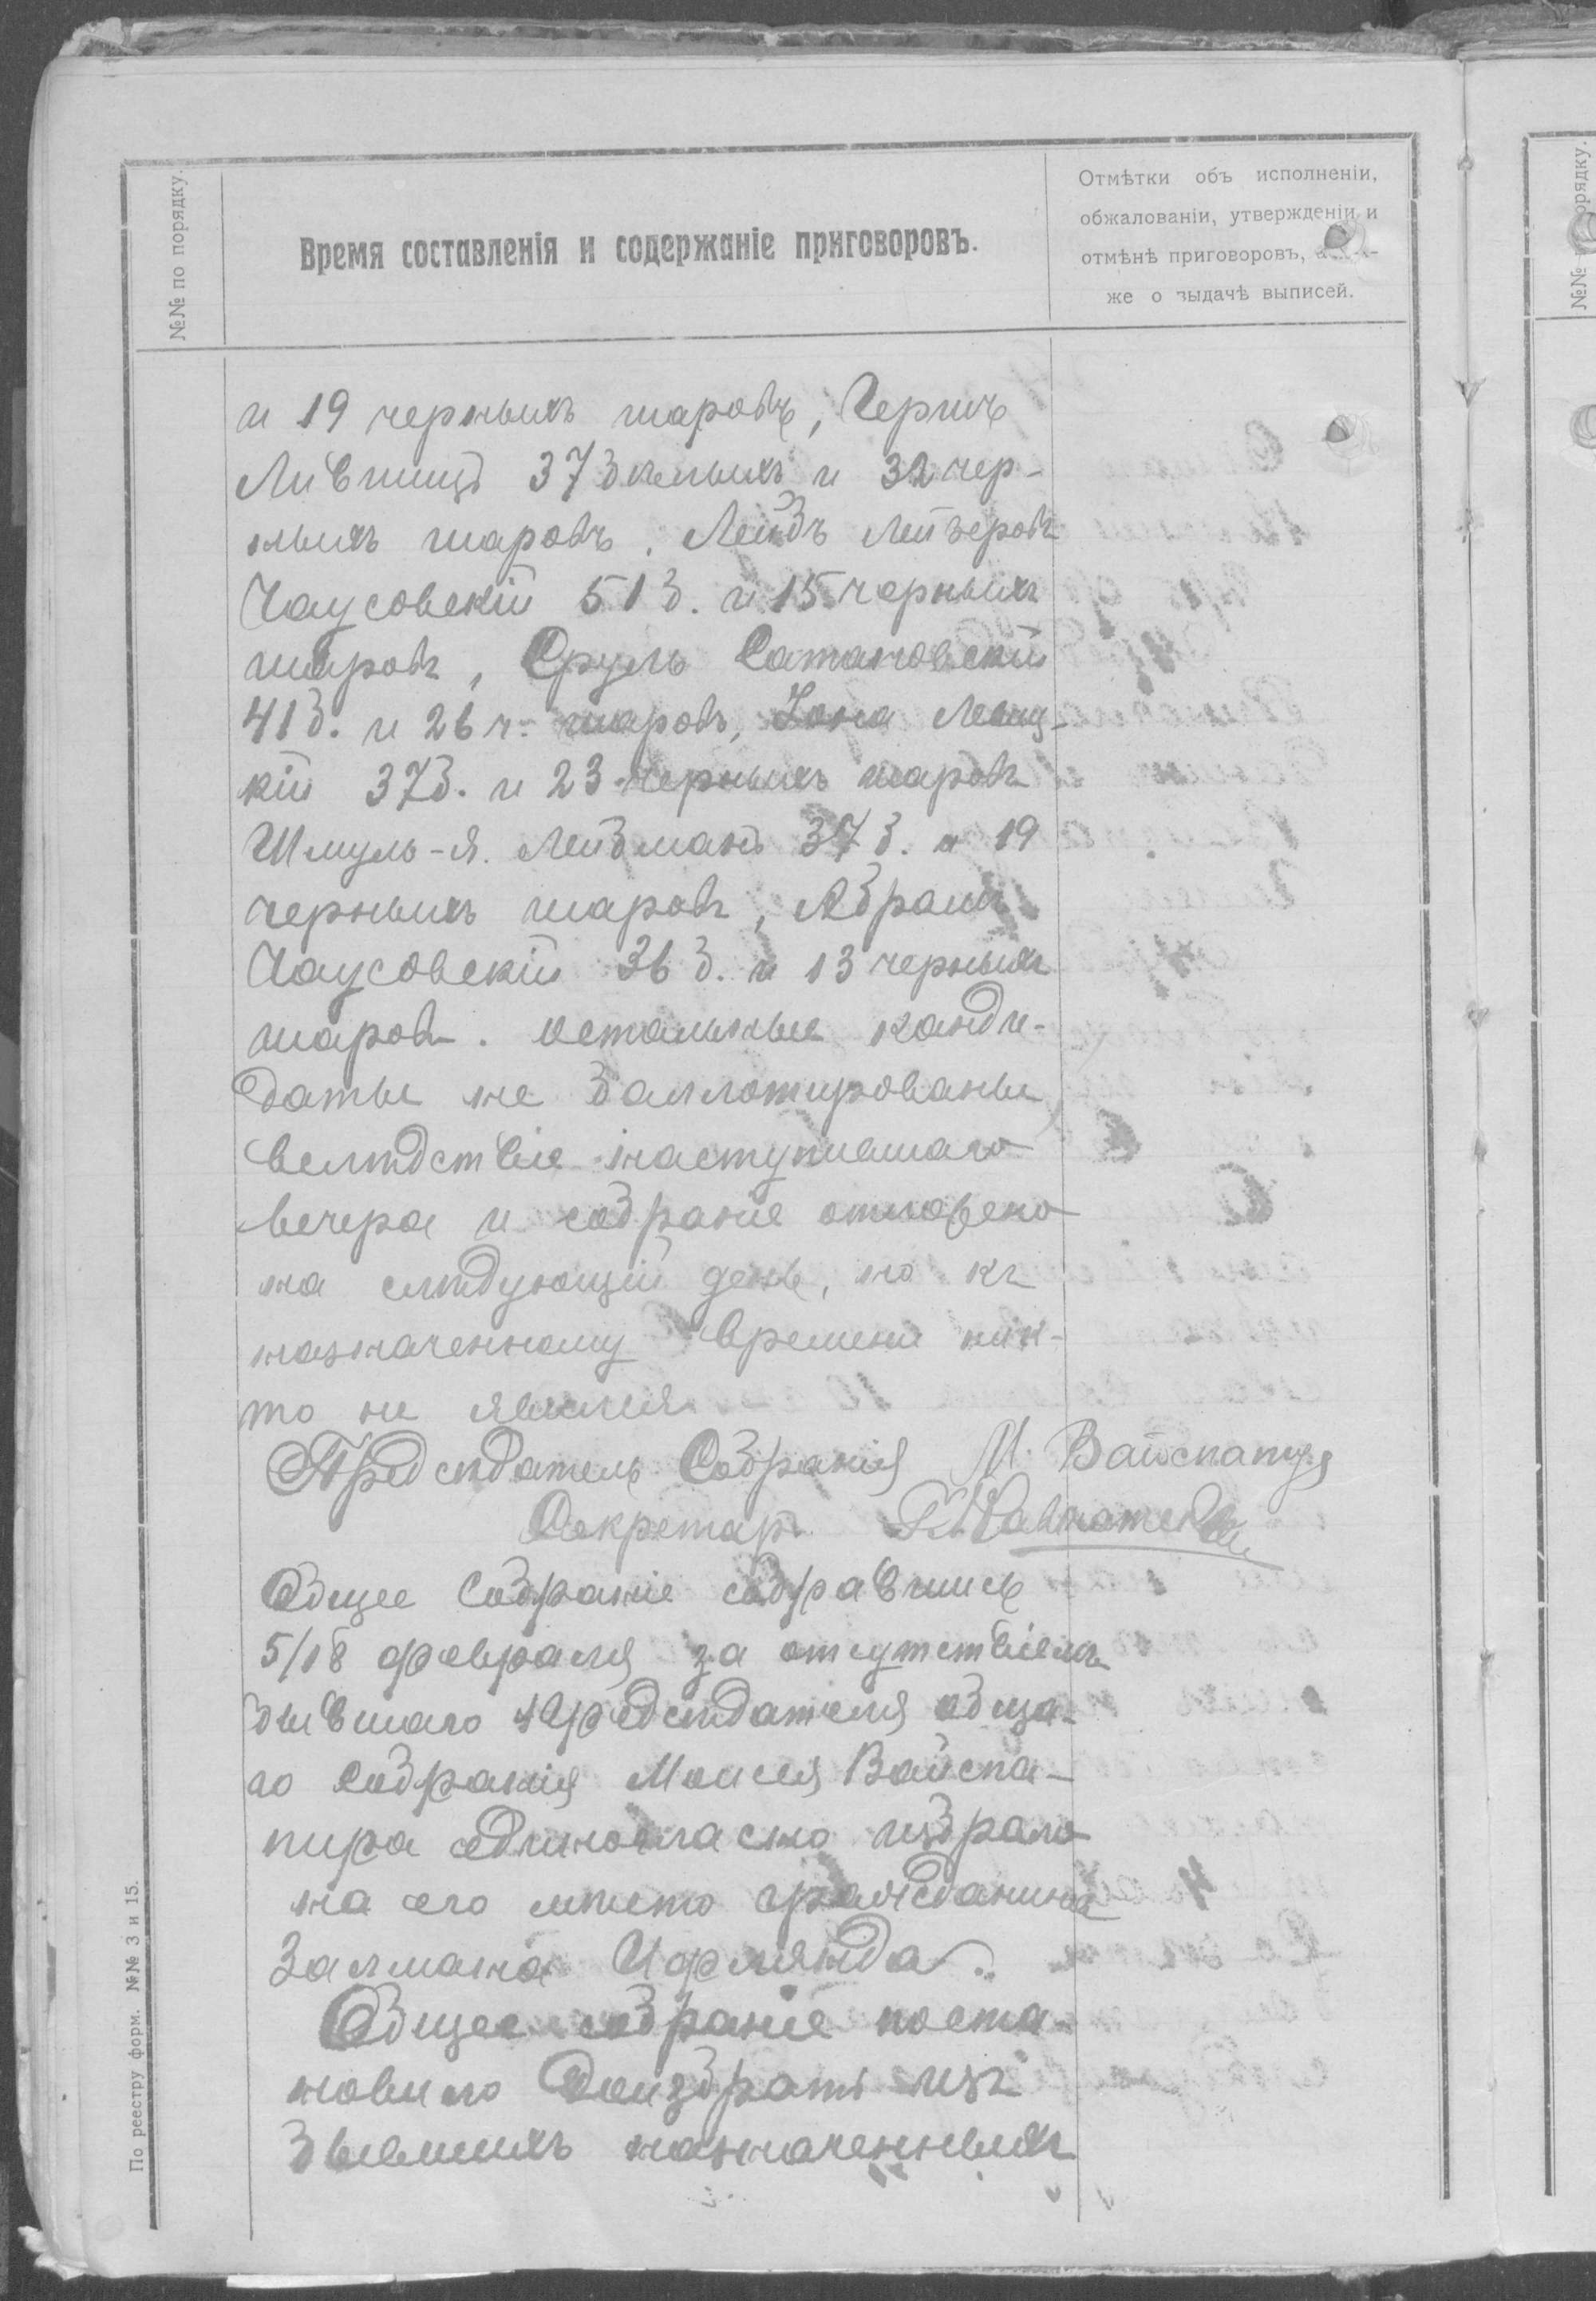 №№ по порядку.
Время составленія и содержаніе приговоровъ.
Отмѣтки объ исполненіи,
обжалованіи, утвержденіи и
отмѣнѣ приговоровъ, а
же о выдачѣ выписей.
№№ порядку.
и 19 черныхъ шаровъ, Гершъ
Лившицъ 37 бѣлыхъ и 32 чер-
ныхъ шаровъ. Лейбъ Лейзеровъ
Чаусовскій 51 б. и 15 черныхъ
шаровъ, Сруль Сатановскій
41 б. и 26 ч. шаровъ, Іона
кій 37 б. и 23 черныхъ шаровъ
Шмуль-Я. Лейбманъ 37 б. и 19
черныхъ шаровъ, Абрамъ
Чаусовскій 36 б. и 13 черныхъ
шаровъ. остальные канди-
даты не баллотированы
вслѣдствіе наступившаго
вечера и собраніе отложено
на слѣдующій день, но къ
назначенному времени ник-
то не явился
Предсѣдатель Собранія М. Вайспапир
Секретарь
Общее Собраніе собравшись
5/18 февраля за отсутствіемъ
бывшаго предсѣдателя обща-
го собранія Моисея Вайспа-
пира единогласно избрало
на его мѣсто гражданина
Залмана Ифлянда.
Общее собраніе поста-
новило доизбрать изъ
бывшихъ назначенныхъ
По реестру форм. №№ 3 и 15.